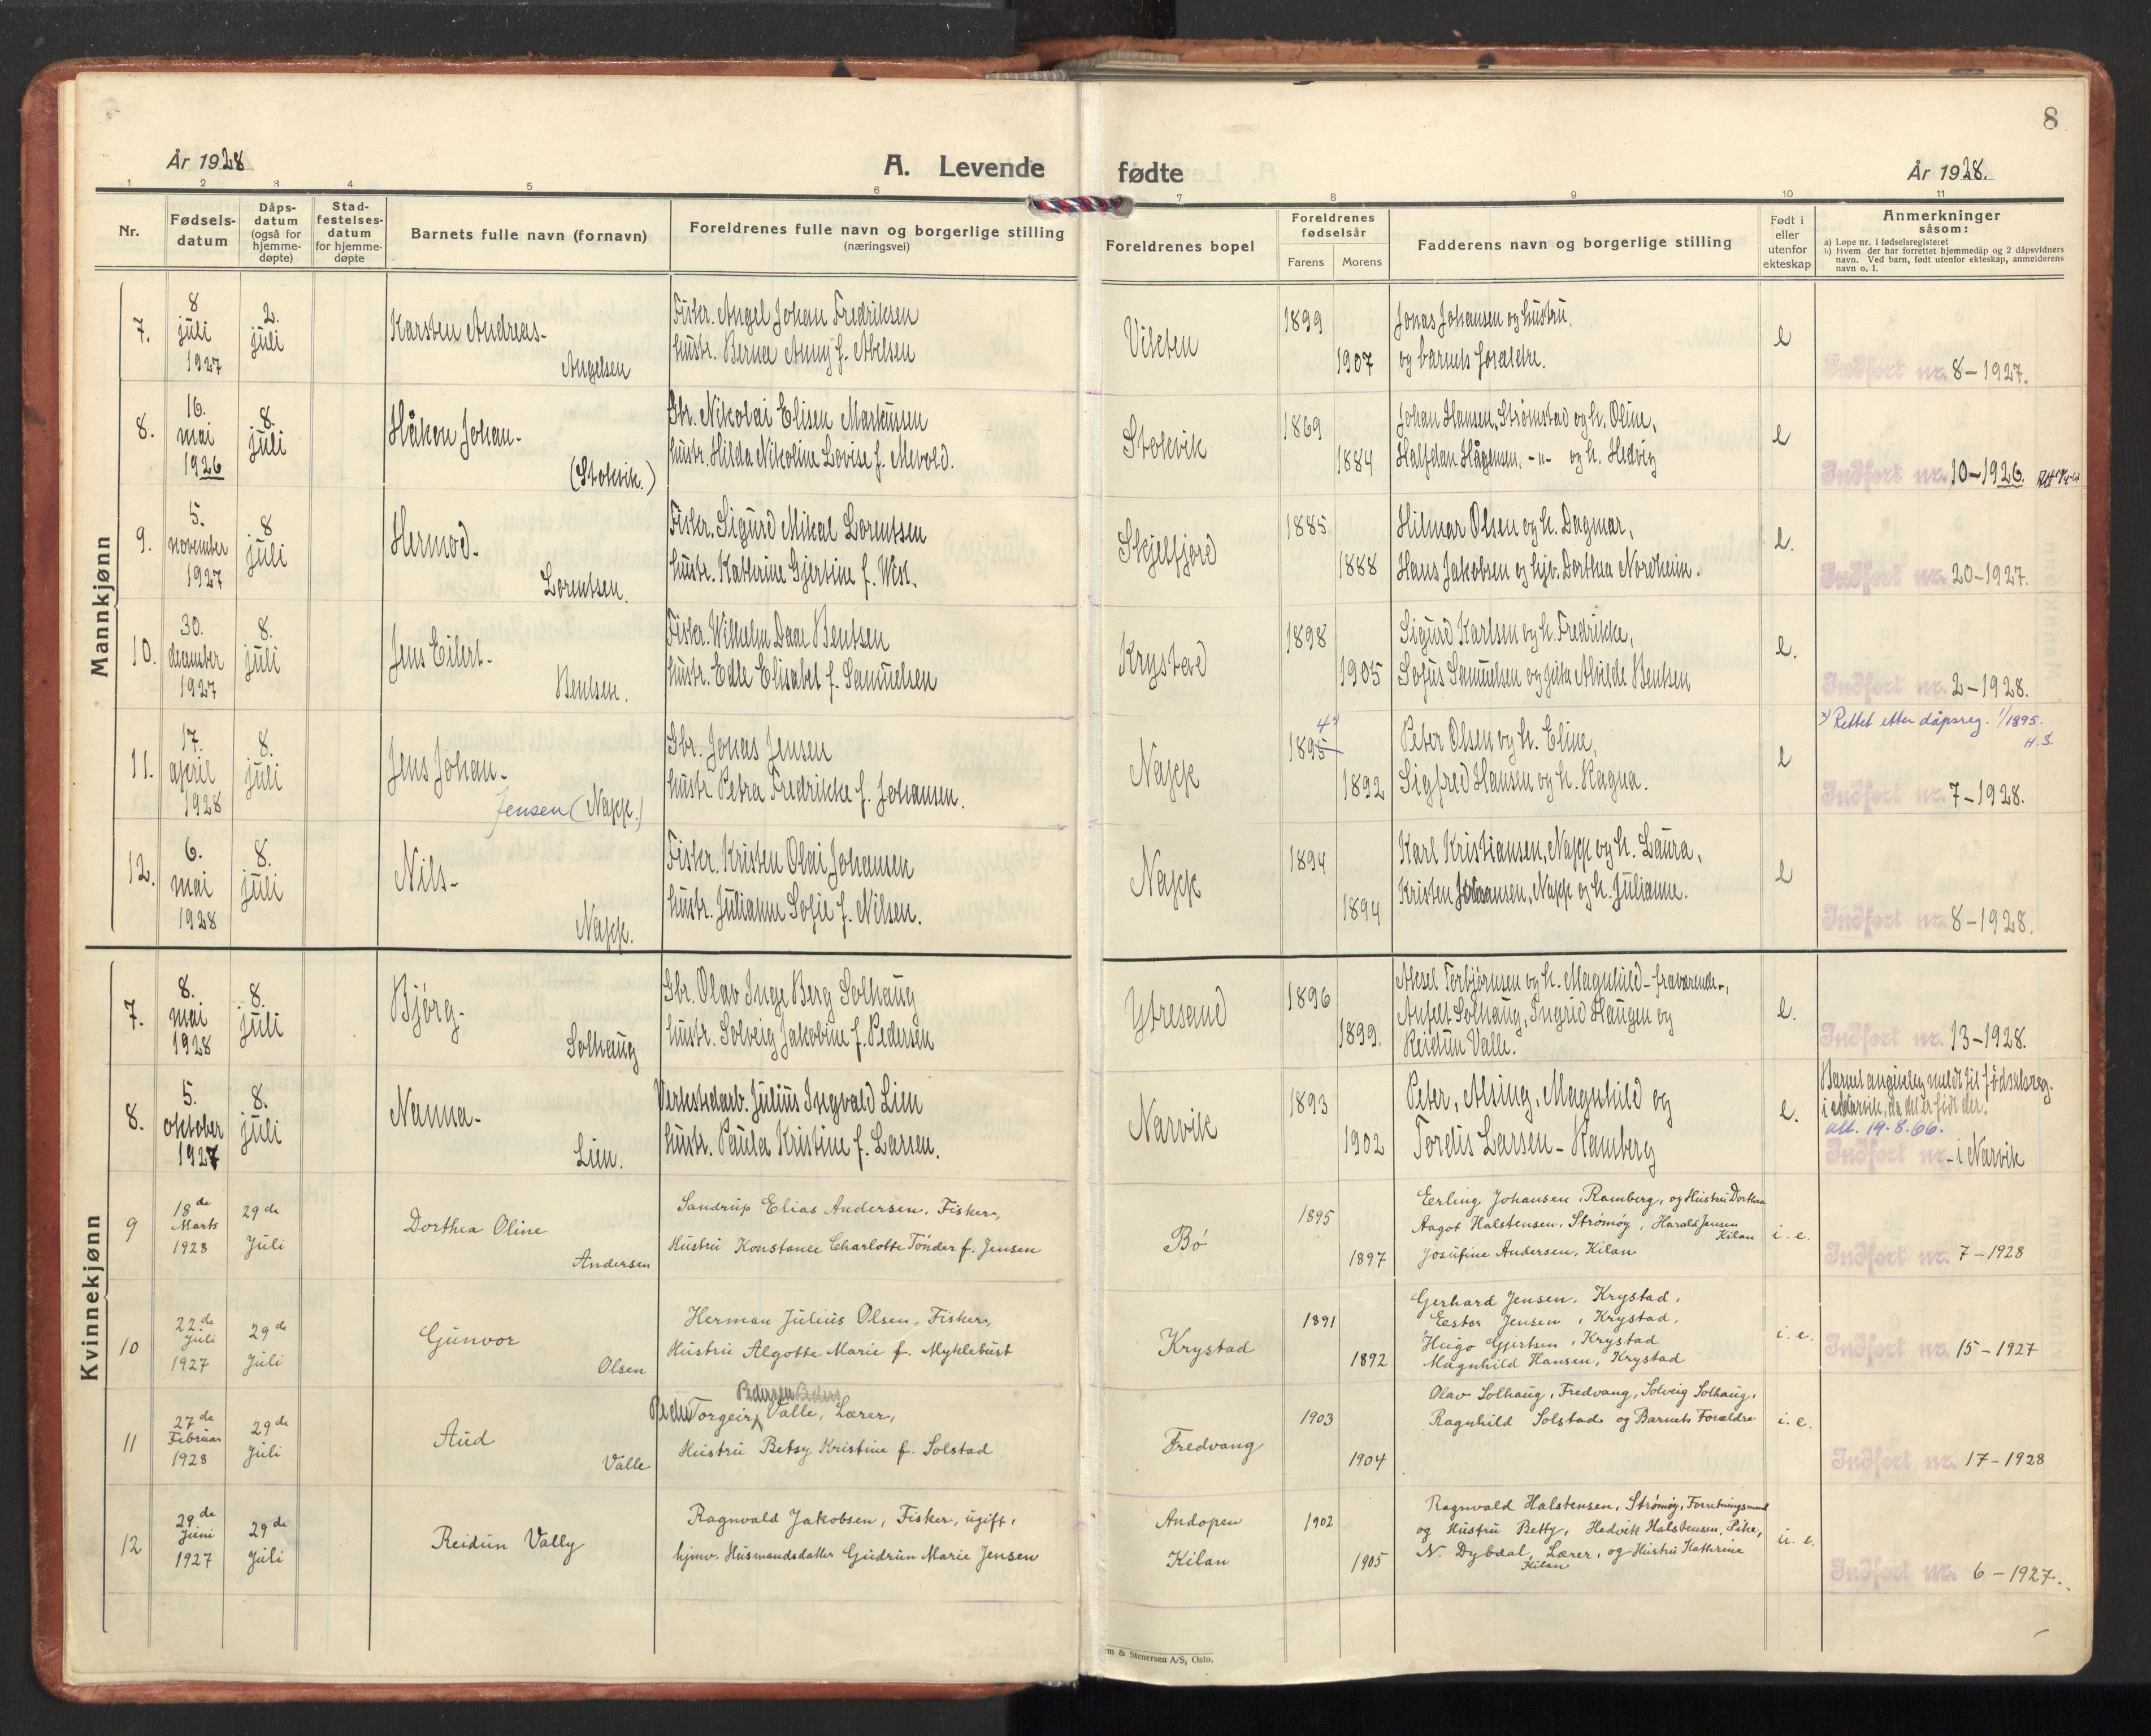 8
År 1928
A. Levende
fødte
År 1928.
1 2 3 4 5 6 7 8 9 10 11
Nr.
Fødsels-
datum
Dåps-
datum
(også for
hjemme-
døpte)
Stad-
festelses-
datum
for hjemme-
døpte
Barnets fulle navn (fornavn)
Foreldrenes fulle navn og borgerlige stilling
(næringsvei)
Foreldrenes bopel
Foreldrenes
fødselsår
Farens
Morens
Fadderens navn og borgerlige stilling
Født i
eller
utenfor
ekteskap
Anmerkninger
såsom:
a) Løpe nr. i fødselsregisteret
b) Hvem der har forrettet hjemmedåp og 2 dåpsvidners
navn. Ved barn, født utenfor ekteskap, anmelderens
navn o. l.
Mannkjønn
7.
8
juli
1927
2.
juli
Karsten Andreas-
Angelsen
Fisker. Angel Johan Fredriksen
hustr. Berna Anny f. Abelsen
Vikten
1899
1907
Jonas Johansen og hustru,
og barnets forældre.
e
Indført nr. 8-1927.
8.
16.
mai
1926
8.
juli
Håkon Johan-
(Stokvik.)
Gbr. Nikolai Elisen Markussen
hustr. Hilda Nikoline Lovise f. Mevold.
Stokvik
1869
1884
Johan Hansen, Strømstad og h. Oline,
Halfdan Hågensen, -"- og h. Hedvig
e
Indført nr. 10-1926.
9.
5.
november
1927
8
juli
Hermod-
Lorentsen.
Fisker. Sigurd Mikal Lorentsen
hustr. Kathrine Gjertine f. Wik.
Skjelfjord
1885
1888
Hilmar Olsen og h. Dagmar,
Hans Jakobsen og hjv. Dorthea Nordheim.
e.
Indført nr. 20-1927.
10.
30.
december
1927
8.
juli
Jens Eilert-
Bentsen.
Fisker. Wilhelm Daae Bentsen
hustr. Edle Elisabet f. Samuelsen
Krystad
1898
1905
Sigurd Karlsen og h. Fredrikke,
Sofus Samuelsen og pike Alvilde Bentsen
e.
Indført nr. 2-1928.
11.
17.
april
1928
8.
juli
Jens Johan-
Jensen (Napp.)
Gbr. Jonas Jensen
hustr Petra Fredrikke f. Johansen.
Napp
4 x)
1895
1892
Peter Olsen og h. Eline,
Sigfred Hansen og h. Ragna.
e
x) Rettet etter dåpsreg. 1/1895.
H.S.
Indført nr. 7-1928.
12.
6.
mai
1928
8.
juli
Nils-
Napp.
Fisker. Kristen Olai Johansen
hustr. Julianne Sofie f. Nilsen.
Napp
1894
1894
Karl Kristiansen, Napp og h. Laura,
Kristen Johansen, Napp og h. Julianne.
e
Indført nr. 8-1928.
Kvinnekjønn
7.
8.
mai
1928
8.
juli
Bjørg-
Solhaug
Gbr. Olav Inge Berg Solhaug
hustr. Solveig Jakobine f. Pedersen
Ytresand
1896
1899.
Aksel Torbjørnsen og h. Magnhild-fraværende-,
Anfelt Solhaug, Ingrid Haugen og
Reidun Valle.
e.
Indført nr. 13-1928.
8.
5.
oktober
1927
8.
juli
Nanna-
Lien.
Verkstedarb. Julius Ingvald Lien
hustr. Paula Kristine f. Larsen.
Narvik
1893
1902
Peter, Alsing, Magnhild og
Tordis Larsen-Ramberg
e.
Barnet angivelig meldt til fødselsreg.
i Narvik, da det er født der.
att. 19.8.66.
Indført nr. - i Narvik
9
18de
Marts
1928
29de
Juli
Dorthea Oline
Andersen
Sandrup Elias Andersen, Fisker,
Hustru Konstance Charlotte Tønder f. Jensen
Bø
1895
1897
Erling Johansen, Ramberg, og Hustru Dorthea
Aagot Halstensen, Strømøy, Harald Jensen
Kilan
Josefine Andersen, Kilan
i. e.
Indført nr. 7-1928
10
22de
Juli
1927
29de
Juli
Gunvor
Olsen
Herman Julius Olsen, Fisker,
Hustru Algotte Marie f. Myklebust
Krystad
1891
1892
Gerhard Jensen, Krystad,
Ester Jensen, Krystad,
Hugo Gjertsen, Krystad
Magnhild Hansen, Krystad
i. e.
Indført nr. 15-1927
11
27de
Februar
1928
29de
Juli
Aud
Valle
Pedersen
Peder Torgeir Valle, Lærer,
Hustru Betsy Kristine f. Solstad
Fredvang
1903
1904
Olav Solhaug, Fredvang, Solveig Solhaug,
Ragnhild Solstad og Barnets Forældre
i. e.
Indført nr. 17-1928
12
29de
Juni
1927
29de
Juli
Reidun Vally
Ragnvald Jakobsen, Fisker, ugift,
hjmv. Husmandsdatter Gudrun Marie Jensen
Andopen
Kilan
1902
1905
Ragnvald Halstensen, Strømøy, Forretningsmand
og Hustru Betty, Hedvik Halstensen, Pike,
N. Dybdal, Lærer, og Hustru Kathrine
Kilan
u. e.
Indført nr. 6-1927.
m & Stenersen A/S, Oslo.